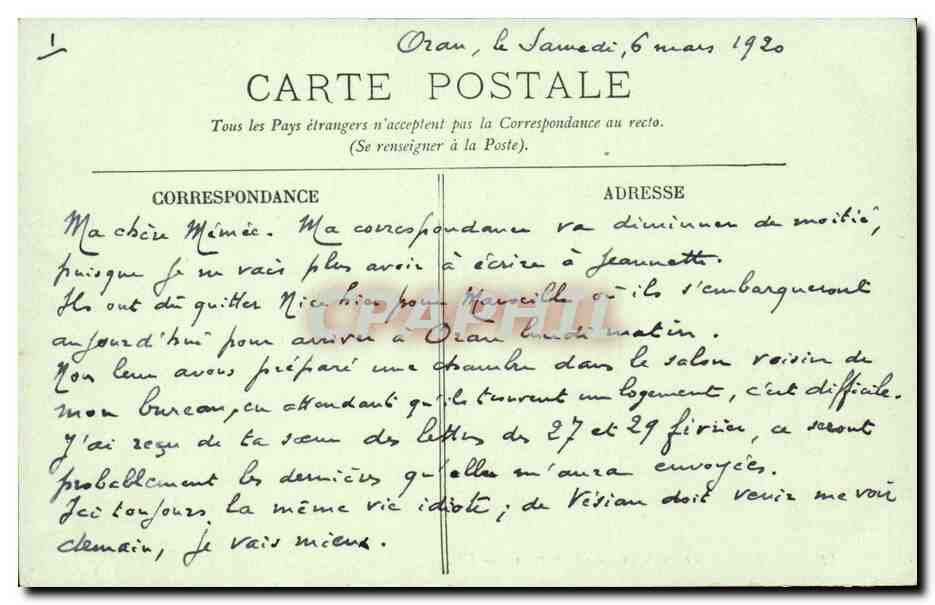 1
Oran, le Samedi, 6 mars 1920
CARTE POSTALE
Tous les Pays étrangers n'acceptent pas la Correspondance au recto.
(Se renseigner à la Poste).
CORRESPONDANCE
ADRESSE
Ma chère Mémée. Ma correspondance va diminuer de moitié,
puisque je ne vais plus avoir à écrire à Jeannette.
Ils ont dû quitter Nice hier pour Marseille où ils s'embarqueront
aujourd'hui pour arriver à Oran lundi matin.
Nous leur avons préparé une chambre dans le salon voisin de
mon bureau, en attendant qu'ils trouvent un logement, c'est difficile.
J'ai reçu de ta sœur des lettres des 27 et 29 février, ce seront
probablement les dernières qu'elle m'aura envoyées.
Ici toujours la même vie idiote ; de Vésian doit venir me voir
demain, je vais mieux.
CPAPHIL